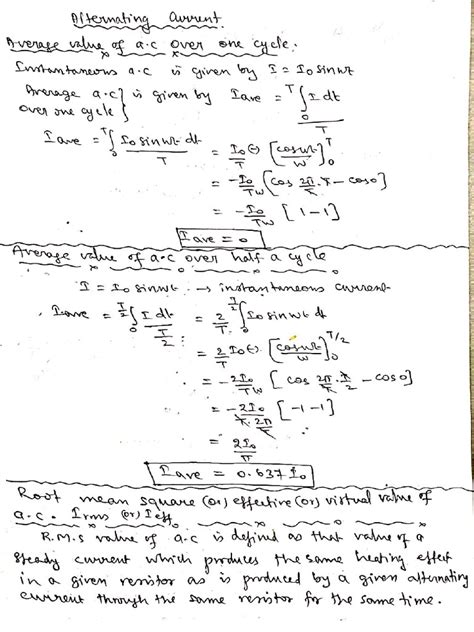 Alternating Current.
Average value of a.c over one cycle.
Instantaneous a.c is given by I = I₀ sinωt
Average a.c } is given by Iave = ∫₀ᵀ I dt / T
over one cycle }
Iave = ∫₀ᵀ I₀ sinωt dt / T = I₀/T (-) [cosωt/ω]₀ᵀ
= -I₀/Tω (cos 2π/T . T - cos0)
= -I₀/Tω [1-1]
Iave = 0
Average value of a.c over half a cycle
I = I₀ sinωt → instantaneous current
Iave = ∫₀^(T/2) I dt / (T/2) = 2/T ∫₀^(T/2) I₀ sinωt dt
= 2/T I₀ (-) [cosωt/ω]₀^(T/2)
= -2I₀/Tω [cos 2π/T . T/2 - cos0]
= -2I₀/(T . 2π/T) [-1-1]
= 2I₀/π
Iave = 0.637 I₀
Root mean square (or) effective (or) virtual value of
a.c. Irms (or) Ieff
R.M.S value of a.c is defined as that value of a
steady current which produces the same heating effect
in a given resistor as is produced by a given alternating
current through the same resistor for the same time.